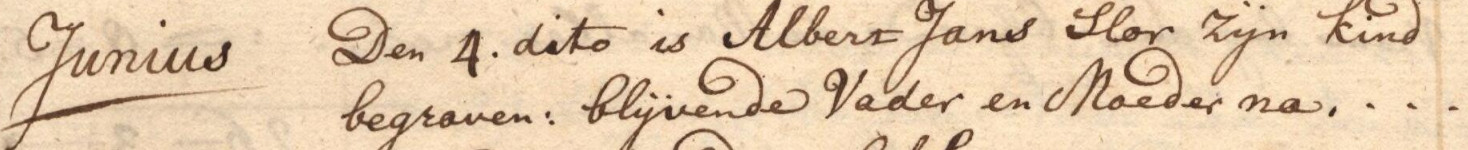 Junius Den 4. dito is Albert Jans Slor zijn kind
begraven: blijvende Vader en Moeder na. . . .